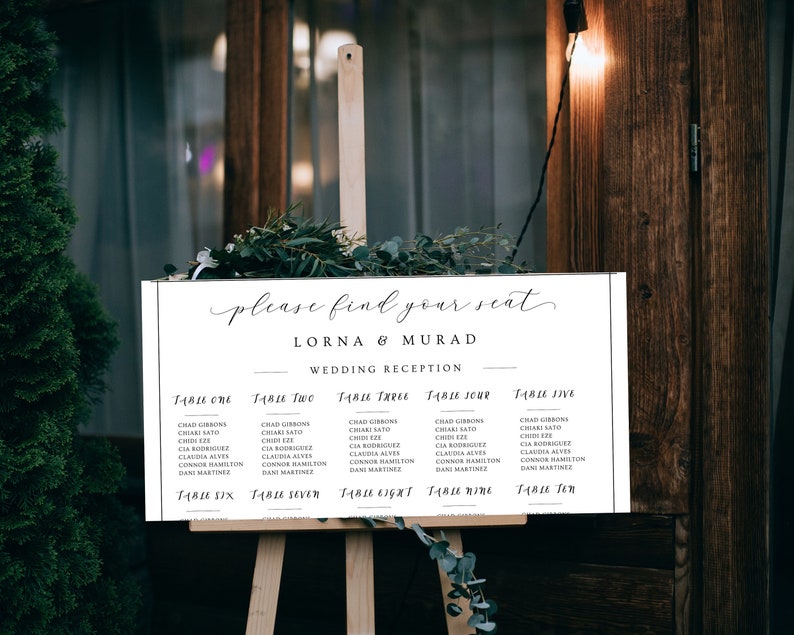 please find your seat
LORNA & MURAD
WEDDING RECEPTION
TABLE ONE TABLE TWO TABLE THREE TABLE FOUR TABLE FIVE
CHAD GIBBONS CHAD GIBBONS CHAD GIBBONS CHAD GIBBONS CHAD GIBBONS
CHIAKI SATO CHIAKI SATO CHIAKI SATO CHIAKI SATO CHIAKI SATO
CHIDI EZE CHIDI EZE CHIDI EZE CHIDI EZE CHIDI EZE
CIA RODRIGUEZ CIA RODRIGUEZ CIA RODRIGUEZ CIA RODRIGUEZ CIA RODRIGUEZ
CLAUDIA ALVES CLAUDIA ALVES CLAUDIA ALVES CLAUDIA ALVES CLAUDIA ALVES
CONNOR HAMILTON CONNOR HAMILTON CONNOR HAMILTON CONNOR HAMILTON CONNOR HAMILTON
DANI MARTINEZ DANI MARTINEZ DANI MARTINEZ DANI MARTINEZ DANI MARTINEZ
TABLE SIX TABLE SEVEN TABLE EIGHT TABLE NINE TABLE TEN